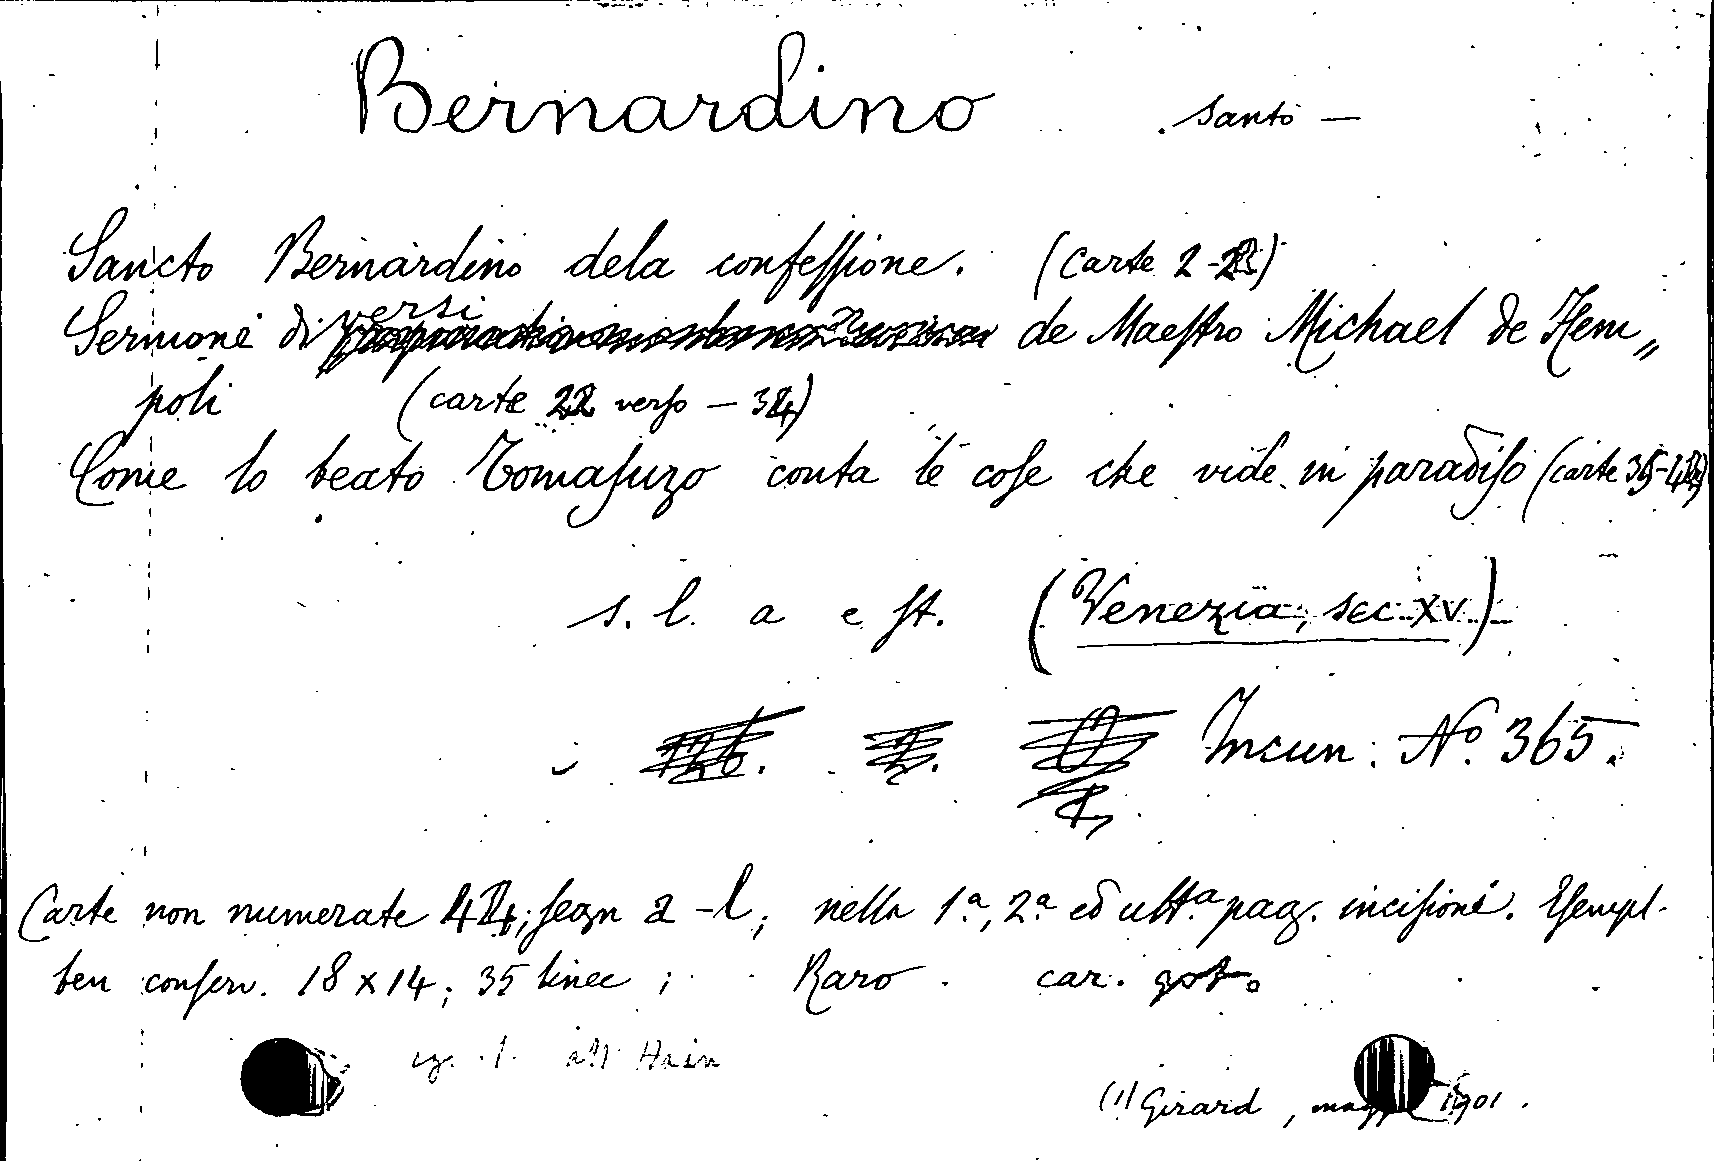 Bernardino santo —
Sancto Bernardino dela confessione. (carte 2-22)
Sermone diversi de Maestro Michael de Hem„
poli (carte 22 verso — 34)
Come lo beato Tomasuzo conta le cose che vide in paradiso (carte 35-44)
s. l. a e st. (Venezia, sec XV)
Incun. Nº 365.
Carte non numerate 44; segn a-l; nella 1ª, 2ª ed ultª pag. incisione. Esempl.
ben conserv. 18 x 14; 35 linee; Raro. car. got.
all' Hain
(1) Girard, 1901.